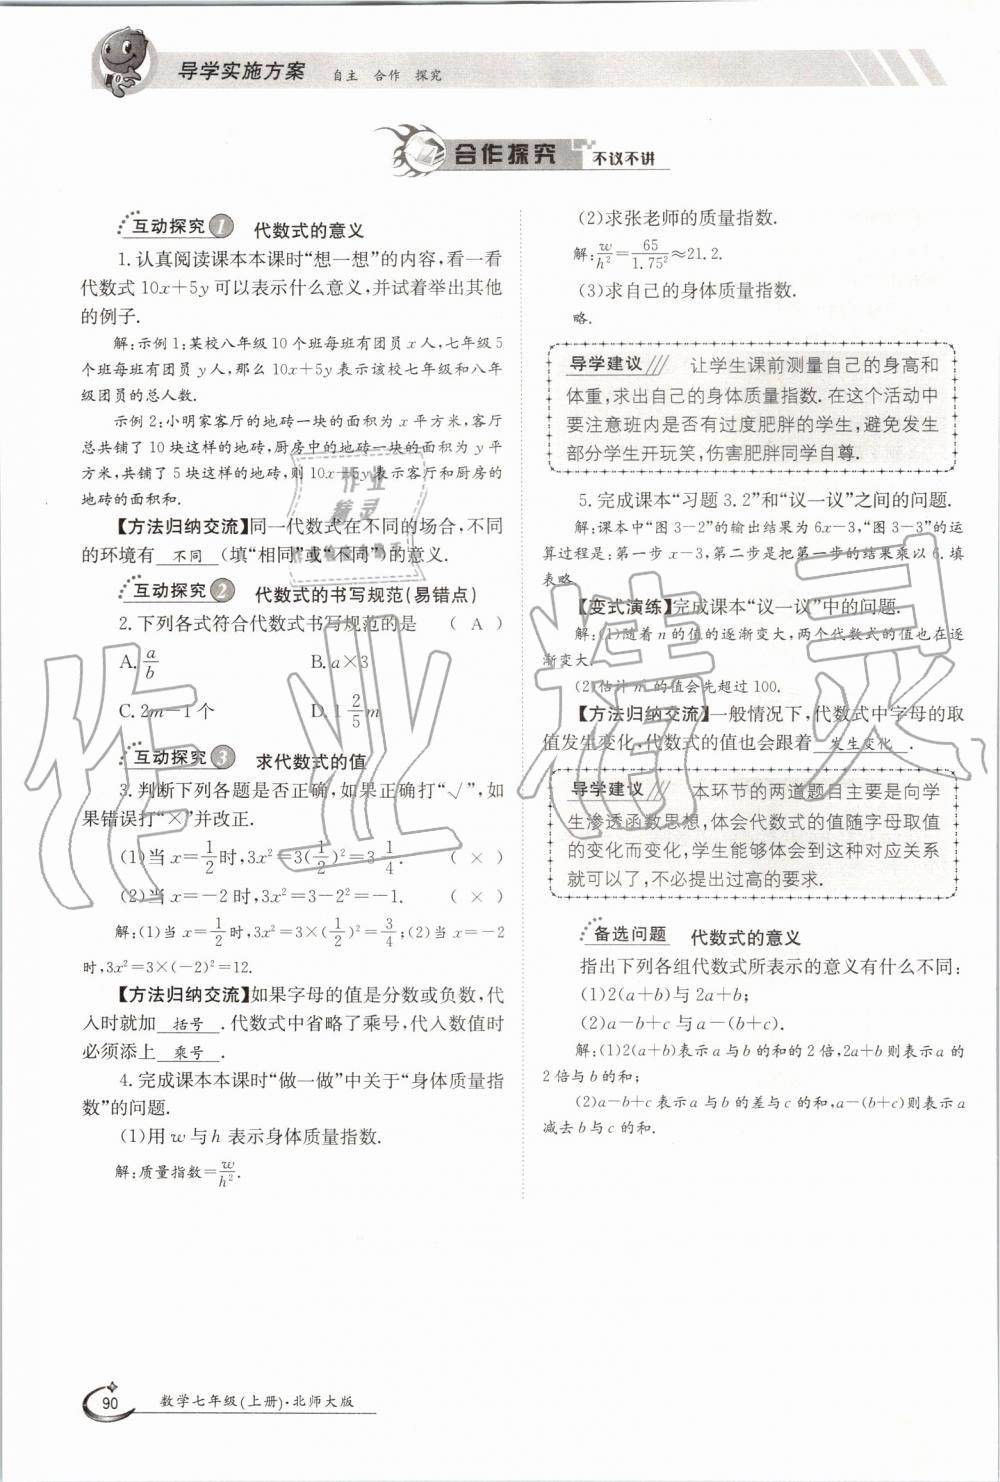 导学实施方案 自主 合作 探究
合作探究 不议不讲
互动探究 1 代数式的意义
1.认真阅读课本本课时“想一想”的内容,看一看
代数式10x+5y可以表示什么意义,并试着举出其他
的例子.
解:示例1:某校八年级10个班每班有团员x人,七年级5
个班每班有团员y人,那么10x+5y表示该校七年级和八年
级团员的总人数.
示例2:小明家客厅的地砖一块的面积为x平方米,客厅
总共铺了10块这样的地砖,厨房中的地砖一块的面积为y平
方米,共铺了5块这样的地砖,则10x+5y表示客厅和厨房的
地砖的面积和.
【方法归纳交流】同一代数式在不同的场合,不同
的环境有 不同 (填“相同”或“不同”)的意义.
互动探究 2 代数式的书写规范(易错点)
2.下列各式符合代数式书写规范的是 ( A )
A. a/b B. a×3
C. 2m-1个 D. 1 2/5 m
互动探究 3 求代数式的值
3.判断下列各题是否正确,如果正确打“√”,如
果错误打“×”并改正.
(1)当x=1/2时,3x²=3(1/2)²=3 1/4. ( × )
(2)当x=-2时,3x²=3-2²=-1. ( × )
解:(1)当x=1/2时,3x²=3×(1/2)²=3/4;(2)当x=-2
时,3x²=3×(-2)²=12.
【方法归纳交流】如果字母的值是分数或负数,代
入时就加 括号 .代数式中省略了乘号,代入数值时
必须添上 乘号 .
4.完成课本本课时“做一做”中关于“身体质量指
数”的问题.
(1)用w与h表示身体质量指数.
解:质量指数=w/h².
(2)求张老师的质量指数.
解:w/h²=65/1.75²≈21.2.
(3)求自己的身体质量指数.
略.
导学建议 让学生课前测量自己的身高和
体重,求出自己的身体质量指数.在这个活动中
要注意班内是否有过度肥胖的学生,避免发生
部分学生开玩笑,伤害肥胖同学自尊.
5.完成课本“习题3.2”和“议一议”之间的问题.
解:课本中“图3-2”的输出结果为6x-3,“图3-3”的运
算过程是:第一步x-3,第二步是把第一步的结果乘以6.填
表略.
【变式演练】完成课本“议一议”中的问题.
解:(1)随着n的值的逐渐变大,两个代数式的值也在逐
渐变大.
(2)估计n²的值会先超过100.
【方法归纳交流】一般情况下,代数式中字母的取
值发生变化,代数式的值也会跟着 发生变化 .
导学建议 本环节的两道题目主要是向学
生渗透函数思想,体会代数式的值随字母取值
的变化而变化,学生能够体会到这种对应关系
就可以了,不必提出过高的要求.
备选问题 代数式的意义
指出下列各组代数式所表示的意义有什么不同:
(1)2(a+b)与2a+b;
(2)a-b+c与a-(b+c).
解:(1)2(a+b)表示a与b的和的2倍,2a+b则表示a的
2倍与b的和;
(2)a-b+c表示a与b的差与c的和,a-(b+c)则表示a
减去b与c的和.
90 数学七年级(上册)·北师大版
作业精灵
作业
精灵